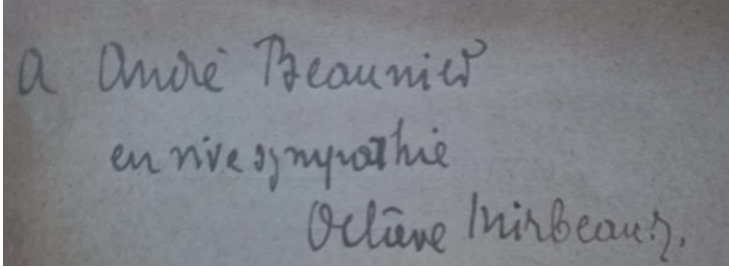 a André Beaunier
en vive sympathie
Octave Mirbeau.